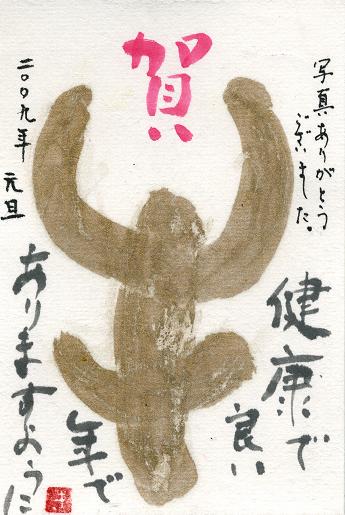 賀
写真ありがとう
ございました。
健康で
良い
年で
ありますように
二〇〇九年 元旦